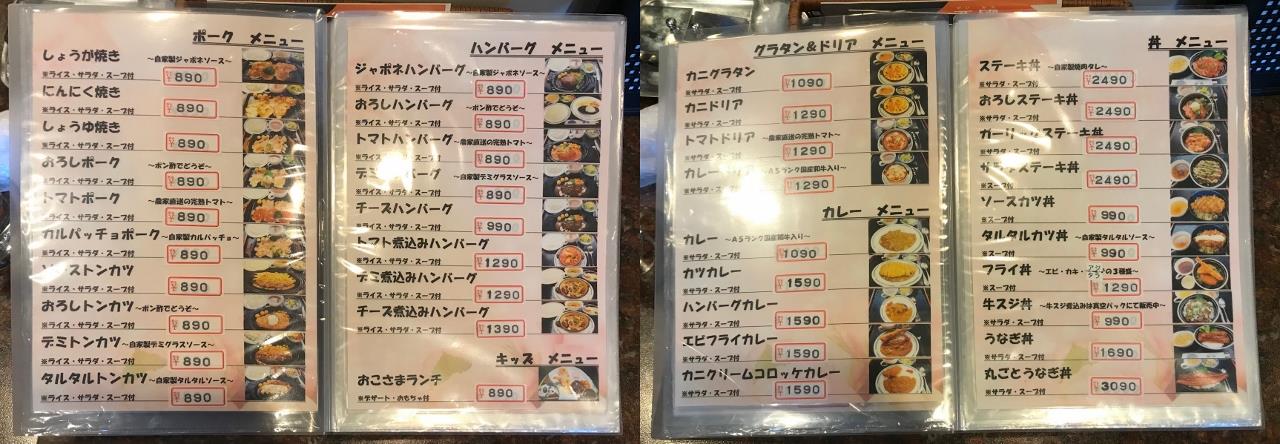 ポーク メニュー
しょうが焼き ～自家製ジャポネソース～
※ライス・サラダ・スープ付 890
にんにく焼き
※ライス・サラダ・スープ付 890
しょうゆ焼き
※ライス・サラダ・スープ付 890
おろしポーク ～ポン酢でどうぞ～
※ライス・サラダ・スープ付 890
トマトポーク ～農家直送の完熟トマト～
※ライス・サラダ・スープ付 890
カルパッチョポーク ～自家製カルパッチョ～
※ライス・サラダ・スープ付 890
ストンカツ
※ライス・サラダ・スープ付 890
おろしトンカツ ～ポン酢でどうぞ～
※ライス・サラダ・スープ付 890
デミトンカツ ～自家製デミグラスソース～
※ライス・サラダ・スープ付 890
タルタルトンカツ ～自家製タルタルソース～
※ライス・サラダ・スープ付 890
ハンバーグ メニュー
ジャポネハンバーグ ～自家製ジャポネソース～
※ライス・サラダ・スープ付 890
おろしハンバーグ ～ポン酢でどうぞ～
※ライス・サラダ・スープ付 890
トマトハンバーグ ～農家直送の完熟トマト～
※ライス・サラダ・スープ付 890
デミ バーグ ～自家製デミグラスソース～
※ライス・サラダ・スープ付 890
チーズハンバーグ
※ライス・サラダ・スープ付 990
トマト煮込みハンバーグ
※ライス・サラダ・スープ付 1290
デミ煮込みハンバーグ
※ライス・サラダ・スープ付 1290
チーズ煮込みハンバーグ
※ライス・サラダ・スープ付 1390
キッズ メニュー
おこさまランチ
※デザート・おもちゃ付 890
グラタン＆ドリア メニュー
カニグラタン
※サラダ・スープ付 1090
カニドリア
※サラダ・スープ付 1290
トマトドリア ～農家直送の完熟トマト～
※サラダ・スープ付 1290
カレー リア ～A5ランク国産和牛入り～
※サラダ・スープ付 1290
カレー メニュー
カレー ～A5ランク国産和牛入り～
※サラダ・スープ付 1090
カツカレー
※サラダ・スープ付 1590
ハンバーグカレー
※サラダ・スープ付 1590
エビフライカレー
※サラダ・スープ付 1590
カニクリームコロッケカレー
※サラダ・スープ付 1590
丼 メニュー
ステーキ丼 ～自家製焼肉タレ～
※サラダ・スープ付 2490
おろしステーキ丼
※サラダ・スープ付 2490
ガーリックステーキ丼
※サラダ・スープ付 2490
ステーキ丼
※スープ付 2490
ソースカツ丼
※スープ付 990
タルタルカツ丼 ～自家製タルタルソース～
※サラダ・スープ付 990
フライ丼 ～エビ・カキ・ の3種盛～
※スープ付 1290
牛スジ丼 ～牛スジ煮込みは真空パックにて販売中～
※サラダ・スープ付 990
うなぎ丼
※サラダ・スープ付 1690
丸ごとうなぎ丼
※サラダ・スープ付 3090